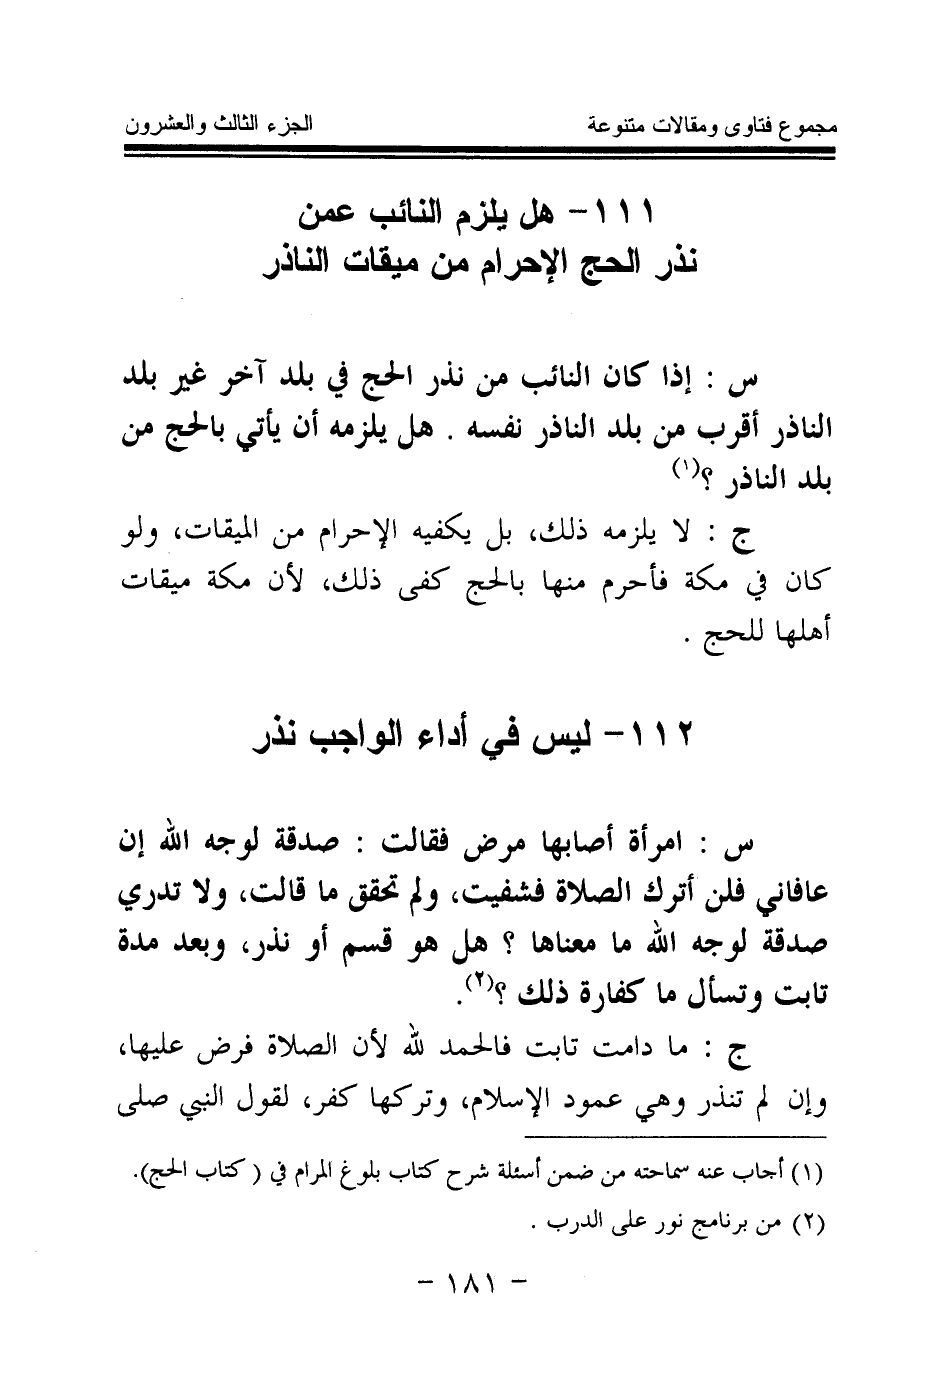 مجموع فتاوى ومقالات متنوعة
الجزء الثالث والعشرون
١١١- هل يلزم النائب عمن
نذر الحج الإحرام من ميقات الناذر
س : إذا كان النائب من نذر الحج في بلد آخر غير بلد
الناذر أقرب من بلد الناذر نفسه . هل يلزمه أن يأتي بالحج من
بلد الناذر ؟(١)
ج : لا يلزمه ذلك، بل يكفيه الإحرام من الميقات، ولو
كان في مكة فأحرم منها بالحج كفى ذلك، لأن مكة ميقات
أهلها للحج .
١١٢- ليس في أداء الواجب نذر
س : امرأة أصابها مرض فقالت : صدقة لوجه الله إن
عافاني فلن أترك الصلاة فشفيت، ولم تحقق ما قالت، ولا تدري
صدقة لوجه الله ما معناها ؟ هل هو قسم أو نذر، وبعد مدة
تابت وتسأل ما كفارة ذلك ؟(٢).
ج : ما دامت تابت فالحمد لله لأن الصلاة فرض عليها،
وإن لم تنذر وهي عمود الإسلام، وتركها كفر، لقول النبي صلى
(١) أجاب عنه سماحته من ضمن أسئلة شرح كتاب بلوغ المرام في ( كتاب الحج).
(٢) من برنامج نور على الدرب .
- ١٨١ -